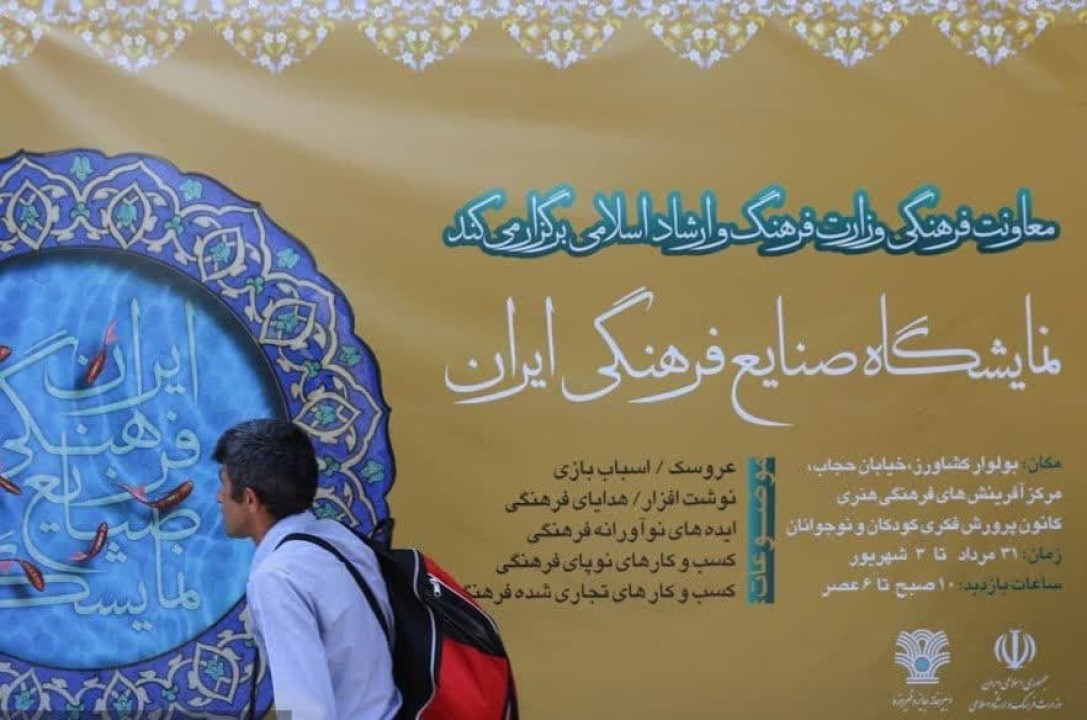 معاونت فرهنگی وزارت فرهنگ و ارشاد اسلامی برگزار می‌کند
نمایشگاه صنایع فرهنگی ایران
مکان: بولوار کشاورز، خیابان حجاب،
مرکز آفرینش های فرهنگی هنری
کانون پرورش فکری کودکان و نوجوانان
زمان: ۳۱ مرداد تا ۳ شهریور
ساعات بازدید: ۱۰ صبح تا ۶ عصر
موضوعات:
عروسک / اسباب بازی
نوشت افزار / هدایای فرهنگی
ایده های نوآورانه فرهنگی
کسب و کارهای نوپای فرهنگی
کسب و کارهای تجاری شده فرهنگی
ایران
فرهنگی
صنایع
نمایشگا
جمهوری اسلامی ایران
وزارت فرهنگ و ارشاد اسلامی